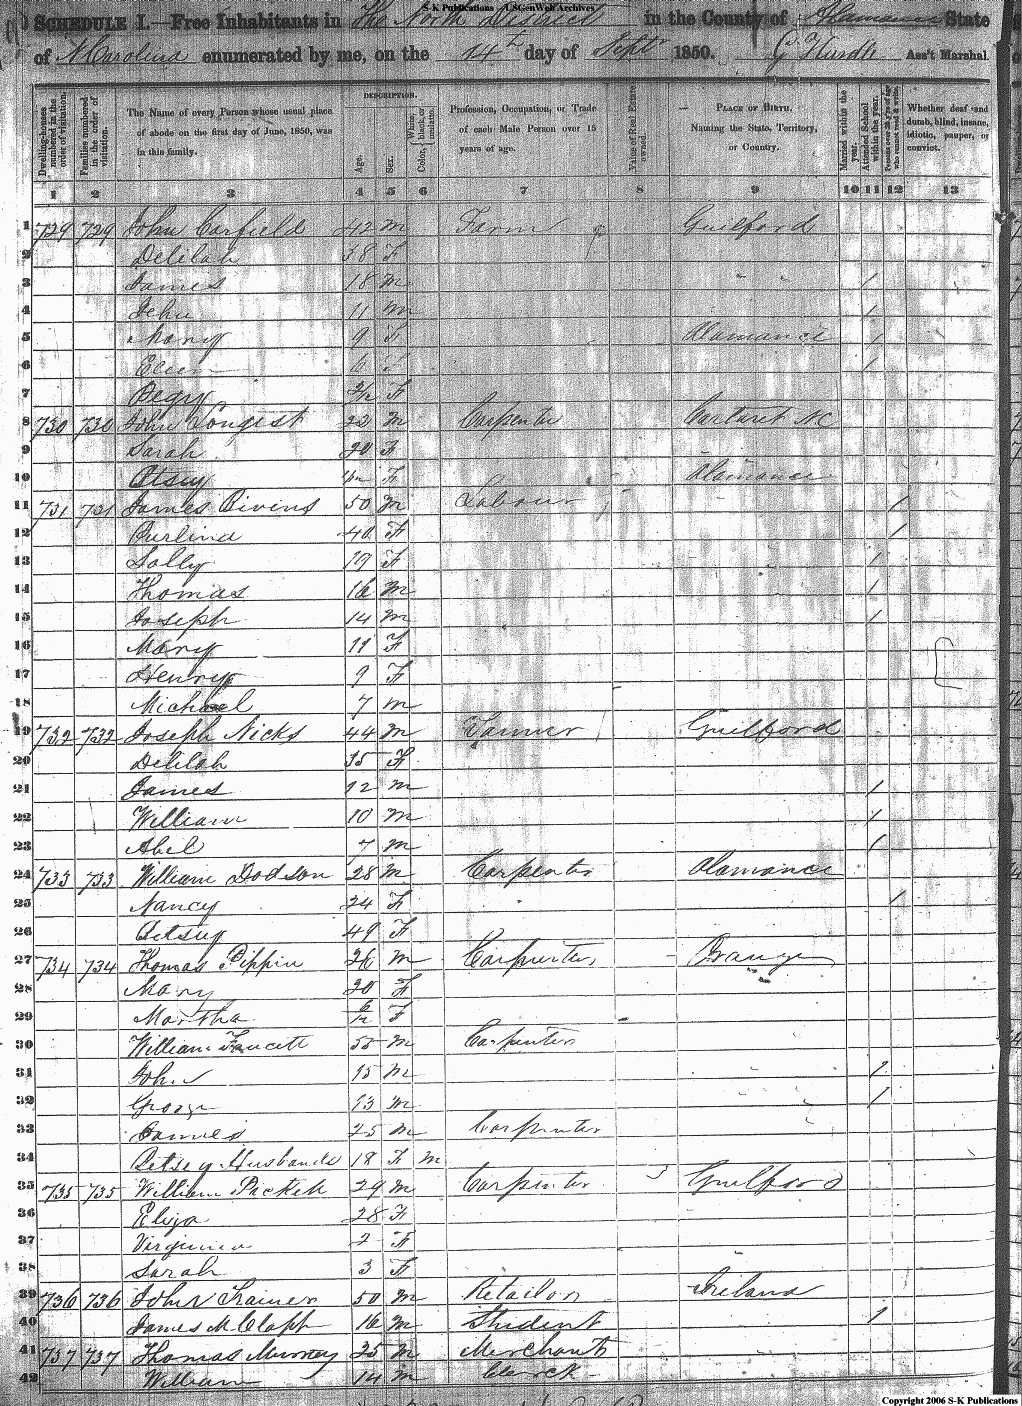 S-K Publications USGenWeb Archives
SCHEDULE I.—Free Inhabitants in The North District in the County of Alamance State
of N Carolina enumerated by me, on the 14th day of Sept 1850. Ass't Marshal.
Dwelling-houses numbered in the order of visitation.
Families numbered in the order of visitation.
The Name of every Person whose usual place of abode on the first day of June, 1850, was in this family.
DESCRIPTION.
Age.
Sex.
Color, White, black, or mulatto.
Profession, Occupation, or Trade of each Male Person over 15 years of age.
Value of Real Estate owned.
PLACE OF BIRTH. Naming the State, Territory, or Country.
Married within the year.
Attended School within the year.
Persons over 20 y'rs of age who cannot read & write.
Whether deaf and dumb, blind, insane, idiotic, pauper, or convict.
1 2 3 4 5 6 7 8 9 10 11 12 13
1 729 729 John Corfield 42 M Farm Guilford
2 Delilah 38 F
3 James 18 M " " 1
4 John 11 M 1
5 Mary 9 F Alamance 1
6 6 F 1
7 F
8 730 730 John Congest 22 M Carpenter Carteret NC
9 Sarah 20 F
10 F Alamance
11 731 731 James Bivins 50 M Labour 1
12 Purlina 40 F 1
13 Solly 19 F 1
14 Thomas 16 M 1
15 Joseph 14 M 1
16 Mary 11 F
17 Henry 9 F
18 Michael 7 M
19 732 732 Joseph Nicks 44 M Guilford
20 Delilah 35 F
21 James 12 M 1
22 William 10 M 1
23 Abel 7 M 1
24 733 733 William Dodson 28 M Carpenter Alamance
25 Nancy 24 F 1
26 49 F
27 734 734 Thomas Pippin 26 M Carpenter Orange
28 Mary 20 F
29 Martha 6/12 F
30 William Faucett 55 M Carpenter
31 John 15 M 1
32 George 13 M 1
33 James 25 M Carpenter
34 Betsey Husbands 18 F M
35 735 735 William Puckett 29 M Carpenter Guilford
36 Eliza 28 F
37 Virginia 2 F
38 Sarah 3 F
39 736 736 John Trainer 50 M Retailor Ireland
40 James M Clapp 16 M Student 1
41 737 737 Thomas Murray 25 M Merchant
42 William 14 M Clerck
Copyright 2006 S-K Publications